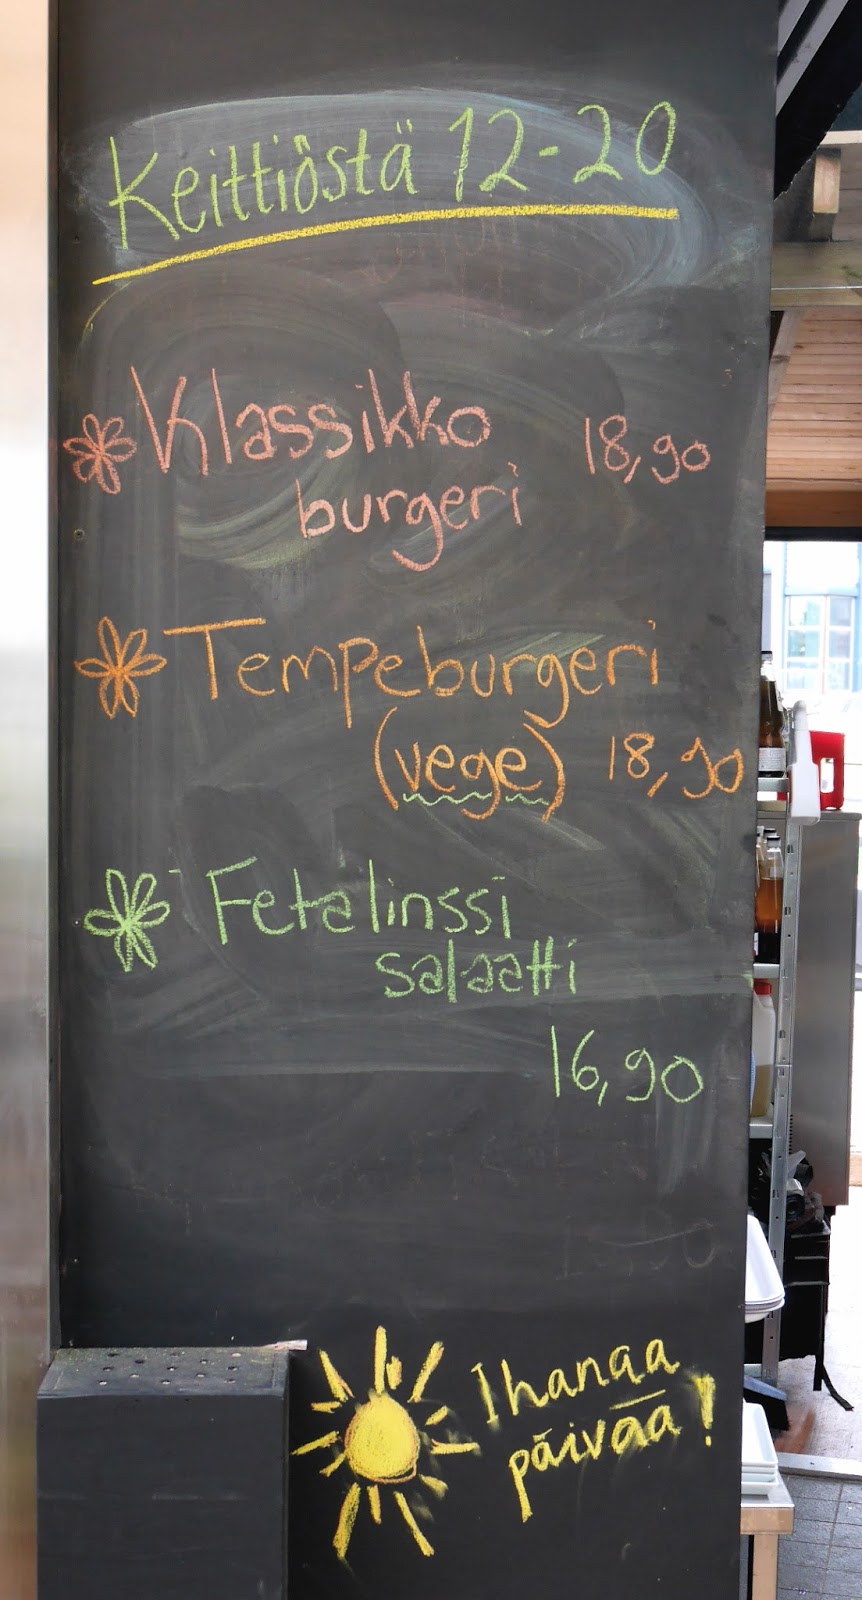 Keittiöstä 12-20
Klassikko 18,90
burgeri
Tempeburgeri
(vege) 18,90
Fetalinssi
salaatti
16,90
Ihanaa
päivää!